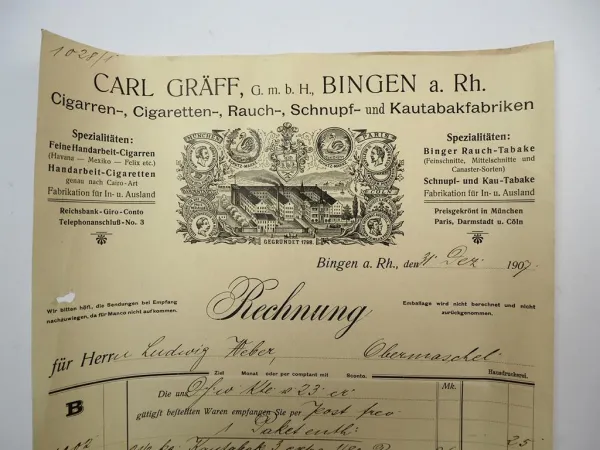 1028/1
CARL GRÄFF, G. m. b. H., BINGEN a. Rh.
Cigarren-, Cigaretten-, Rauch-, Schnupf- und Kautabakfabriken
Spezialitäten:
Feine Handarbeit-Cigarren
(Havana — Mexiko — Felix etc.)
Handarbeit-Cigaretten
genau nach Cairo-Art
Fabrikation für In- u. Ausland
Reichsbank-Giro-Conto
Telephonanschluß-No. 3
MÜNCHEN
PARIS
GEGRÜNDET 1798.
Spezialitäten:
Binger Rauch-Tabake
(Feinschnitte, Mittelschnitte und
Canaster-Sorten)
Schnupf- und Kau-Tabake
Fabrikation für In- u. Ausland
Preisgekrönt in München
Paris, Darmstadt u. Cöln
Bingen a. Rh., den 31 Dez. 1907.
Wir bitten höfl., die Sendungen bei Empfang
nachzuwiegen, da für Manco nicht aufkommen.
Rechnung
Emballage wird nicht berechnet und nicht
zurückgenommen.
für Herrn Ludwig Weber, Obermoschel
Ziel Monat oder per comptant mit Sconto.
Hausdruckerei.
Die uns
Mk.
B
gütigst bestellten Waren empfangen Sie per Post frco
1 Paket enth:
Kautabak
25